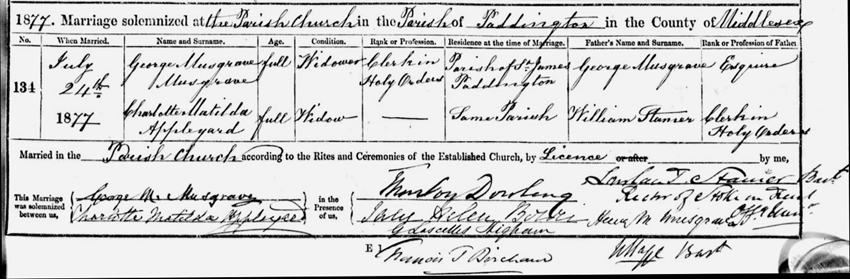 1877. Marriage solemnized at the Parish Church in the Parish of Paddington in the County of Middlesex
No. When Married. Name and Surname. Age. Condition. Rank or Profession. Residence at the time of Marriage. Father's Name and Surname. Rank or Profession of Father
134 July 24th 1877 George Musgrave Musgrave full Widower Clerk in Holy Orders Parish of St. James Paddington George Musgrave Esquire
Charlotte Matilda Appleyard full Widow — Same Parish William Stamer Clerk in Holy Orders
Married in the Parish Church according to the Rites and Ceremonies of the Established Church, by Licence or after by me,
This Marriage was solemnized between us, George M. Musgrave
Charlotte Matilda Appleyard
in the Presence of us,
Dowling
Helen
G Lascelles Higham
Francis T Bircham
Stamer Bart
Rector of
Henry M Musgrave
Bart